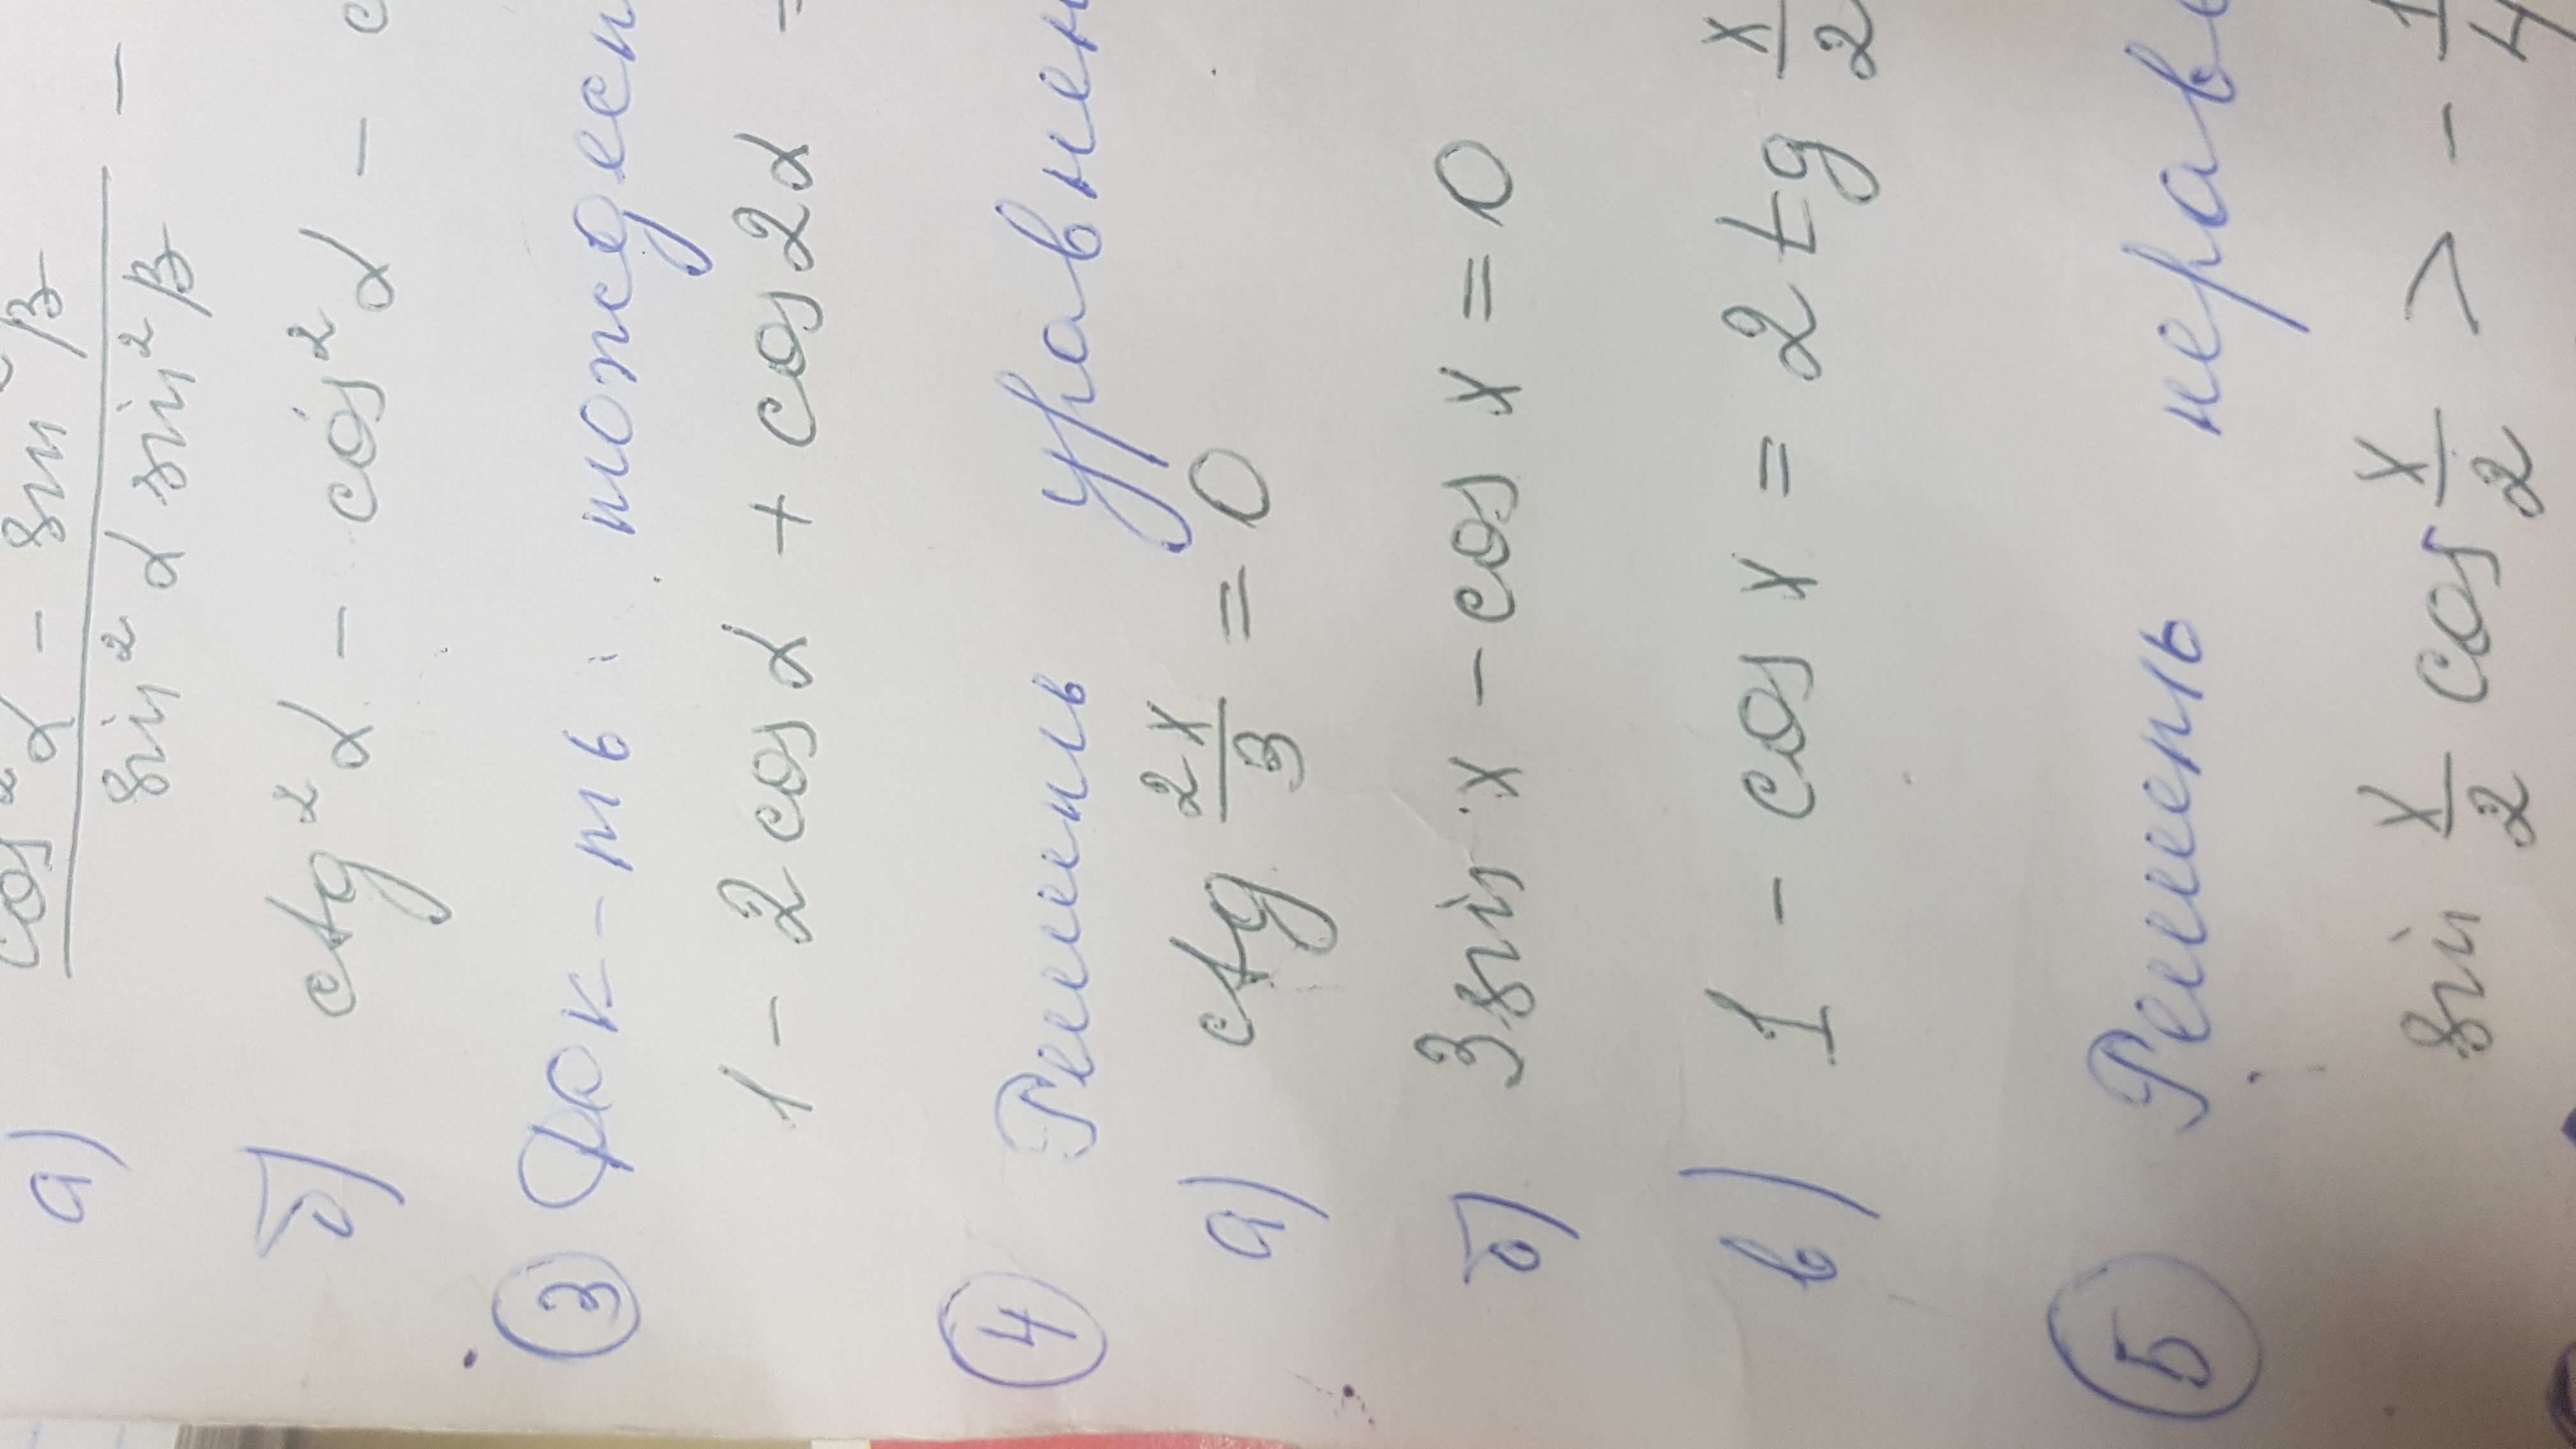 а) cos² α - sin² β / sin² α sin² β -
б) ctg² α - cos² α -
③ Док-ть тождест
1 - 2 cos α + cos 2α =
④ Решить уравнен
а) ctg 2x/3 = 0
б) 3 sin x - cos x = 0
в) 1 - cos x = 2 tg x/2
⑤ Решить нерав
sin x/2 cos x/2 > - 1/4